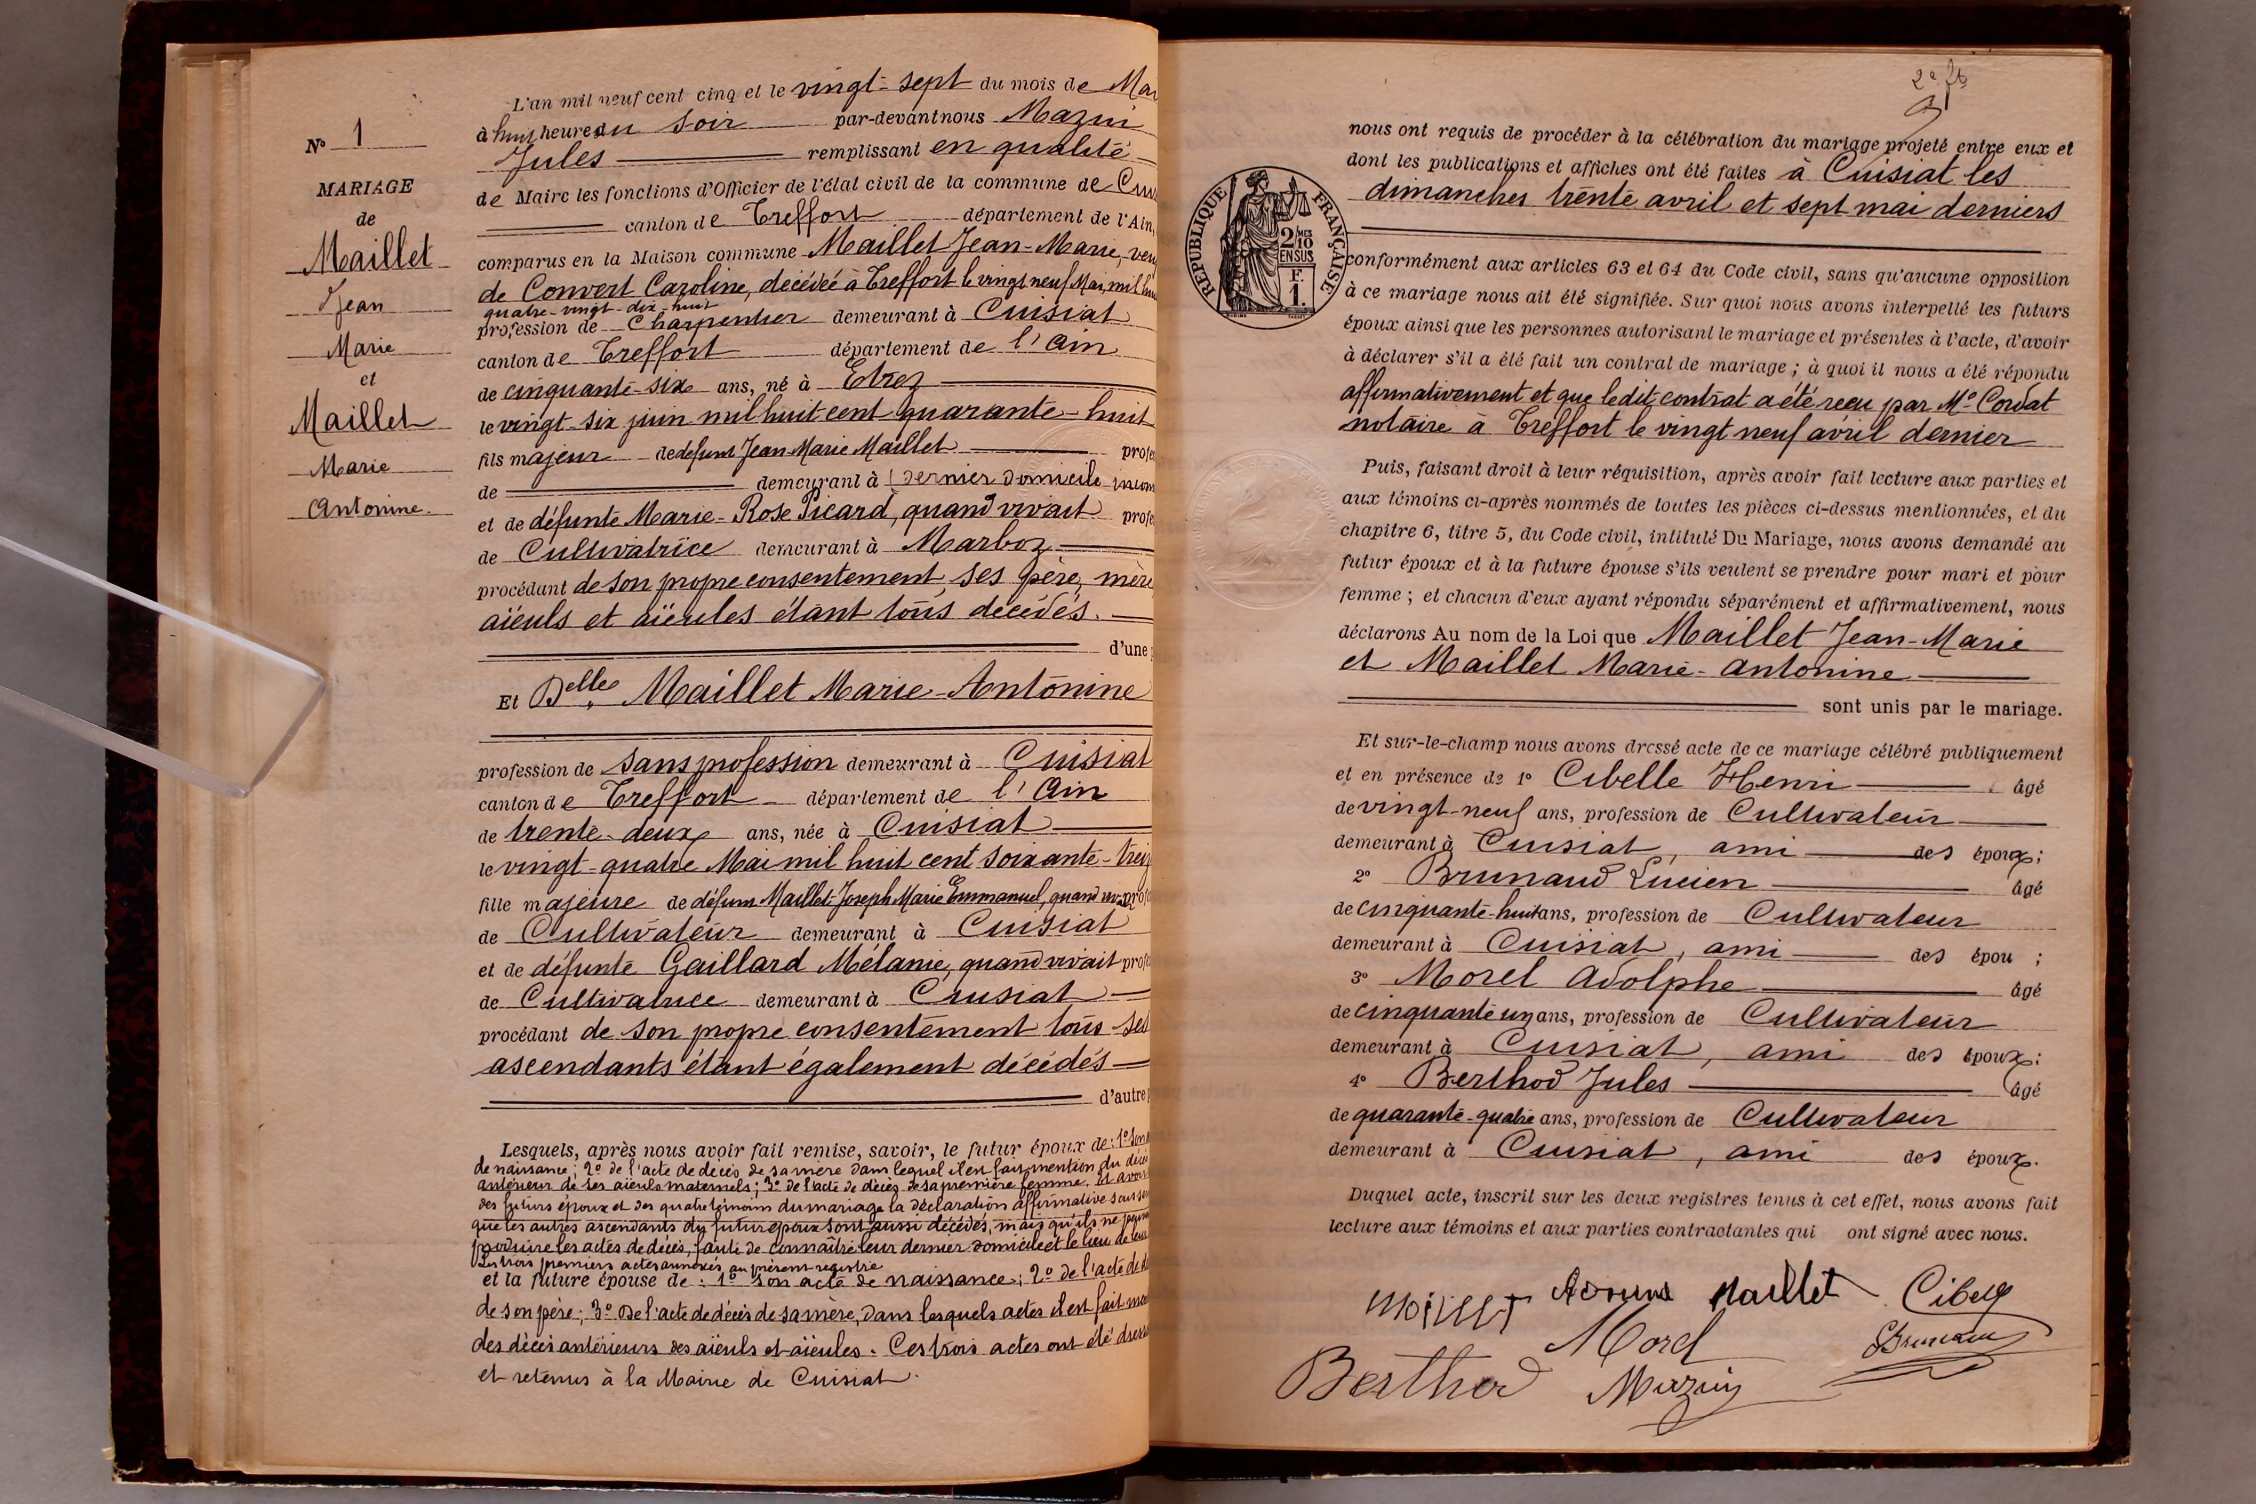 L'an mil neuf cent cinq et le vingt-sept du mois de Mai
à huit heures du soir par-devant nous Mazuy
Jules remplissant en qualité
de Maire les fonctions d'Officier de l'état civil de la commune de
canton de Treffort département de l'Ain,
comparus en la Maison commune Maillet Jean-Marie, veu
de Convert Caroline, décédée à Treffort le vingt neuf Mai, mil hui
quatre-vingt-dix-huit
profession de Charpentier demeurant à Cuisiat
canton de Treffort département de l'Ain
de cinquante-six ans, né à Etrez
le vingt-six juin mil huit cent quarante-huit
fils majeur de défunt Jean Marie Maillet profe
de demeurant à (dernier domicile incon
et de défunte Marie-Rose Picard, quand vivait profe
de Cultivatrice demeurant à Marboz
procédant de son propre consentement, ses père, mère
aïeuls et aïeules étant tous décédés.
d'une p
Et Delle Maillet Marie-Antonine
profession de sans profession demeurant à Cuisiat
canton de Treffort département de l'Ain
de trente-deux ans, née à Cuisiat
le vingt-quatre Mai mil huit cent soixante-treiz
fille majeure de défunt Maillet Joseph Marie Emmanuel, quand vivait profe
de Cultivateur demeurant à Cuisiat
et de défunte Gaillard Mélanie, quand vivait profe
de Cultivatrice demeurant à Cuisiat
procédant de son propre consentement tous ses
ascendants étant également décédés
d'autre p
Lesquels, après nous avoir fait remise, savoir, le futur époux de : 1º son
de naissance ; 2º de l'acte de décès de sa mère dans lequel il en fait mention du décès
antérieur de ses aïeuls maternels ; 3º de l'acte de décès de sa première femme. et avoir
des futurs époux et des quatre témoins du mariage la déclaration affirmative sous ser
que les autres ascendants du futur époux sont aussi décédés, mais qu'ils ne peuven
produire les actes de décès, faute de connaître leur dernier domicile et le lieu de leur
Les trois premiers actes annexés au présent registre
et la future épouse de : 1º son acte de naissance ; 2º de l'acte de dé
de son père ; 3º De l'acte de décès de sa mère, dans lesquels actes il est fait men
des décès antérieurs des aïeuls et aïeules. Ces trois actes ont été dressé
et retenus à la Mairie de Cuisiat.
Nº 1
MARIAGE
de
Maillet
Jean
Marie
et
Maillet
Marie
Antonine
RÉPUBLIQUE FRANÇAISE
2/10 MES
EN SUS
F.
1.
nous ont requis de procéder à la célébration du mariage projeté entre eux et
dont les publications et affiches ont été faites à Cuisiat les
dimanches trente avril et sept mai derniers
conformément aux articles 63 et 64 du Code civil, sans qu'aucune opposition
à ce mariage nous ait été signifiée. Sur quoi nous avons interpellé les futurs
époux ainsi que les personnes autorisant le mariage et présentes à l'acte, d'avoir
à déclarer s'il a été fait un contrat de mariage ; à quoi il nous a été répondu
affirmativement et que ledit contrat a été reçu par Me Cordat
notaire à Treffort le vingt neuf avril dernier
Puis, faisant droit à leur réquisition, après avoir fait lecture aux parties et
aux témoins ci-après nommés de toutes les pièces ci-dessus mentionnées, et du
chapitre 6, titre 5, du Code civil, intitulé Du Mariage, nous avons demandé au
futur époux et à la future épouse s'ils veulent se prendre pour mari et pour
femme ; et chacun d'eux ayant répondu séparément et affirmativement, nous
déclarons Au nom de la Loi que Maillet Jean-Marie
et Maillet Marie-Antonine
sont unis par le mariage.
Et sur-le-champ nous avons dressé acte de ce mariage célébré publiquement
et en présence de 1º Cibelle Henri âgé
de vingt-neuf ans, profession de Cultivateur
demeurant à Cuisiat, ami des époux ;
2º Brunaud Lucien âgé
de cinquante-huit ans, profession de Cultivateur
demeurant à Cuisiat, ami des épou ;
3º Morel Adolphe âgé
de cinquante un ans, profession de Cultivateur
demeurant à Cuisiat, ami des époux ;
4º Berthod Jules âgé
de quarante-quatre ans, profession de Cultivateur
demeurant à Cuisiat, ami des époux.
Duquel acte, inscrit sur les deux registres tenus à cet effet, nous avons fait
lecture aux témoins et aux parties contractantes qui ont signé avec nous.
Maillet Maillet
Morel Brunaud
Berthod Mazuy